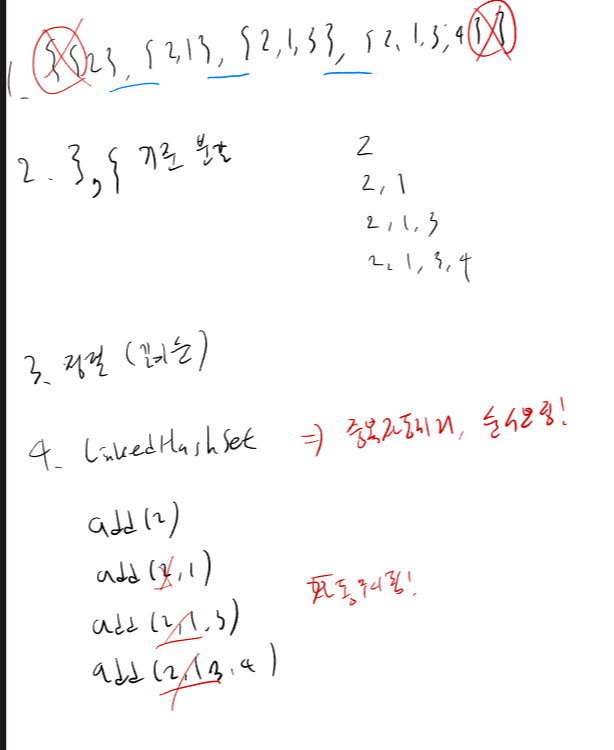 1. {{2}, {2,1}, {2,1,3}, {2,1,3,4}}
2. },{ 기준 분할
2
2,1
2,1,3
2,1,3,4
3. 정렬 (길이순)
4. LinkedHashSet => 중복자동제거, 순서보장!
add(2)
add(2,1)
add(2,1,3) 자동제거됨!
add(2,1,3,4)